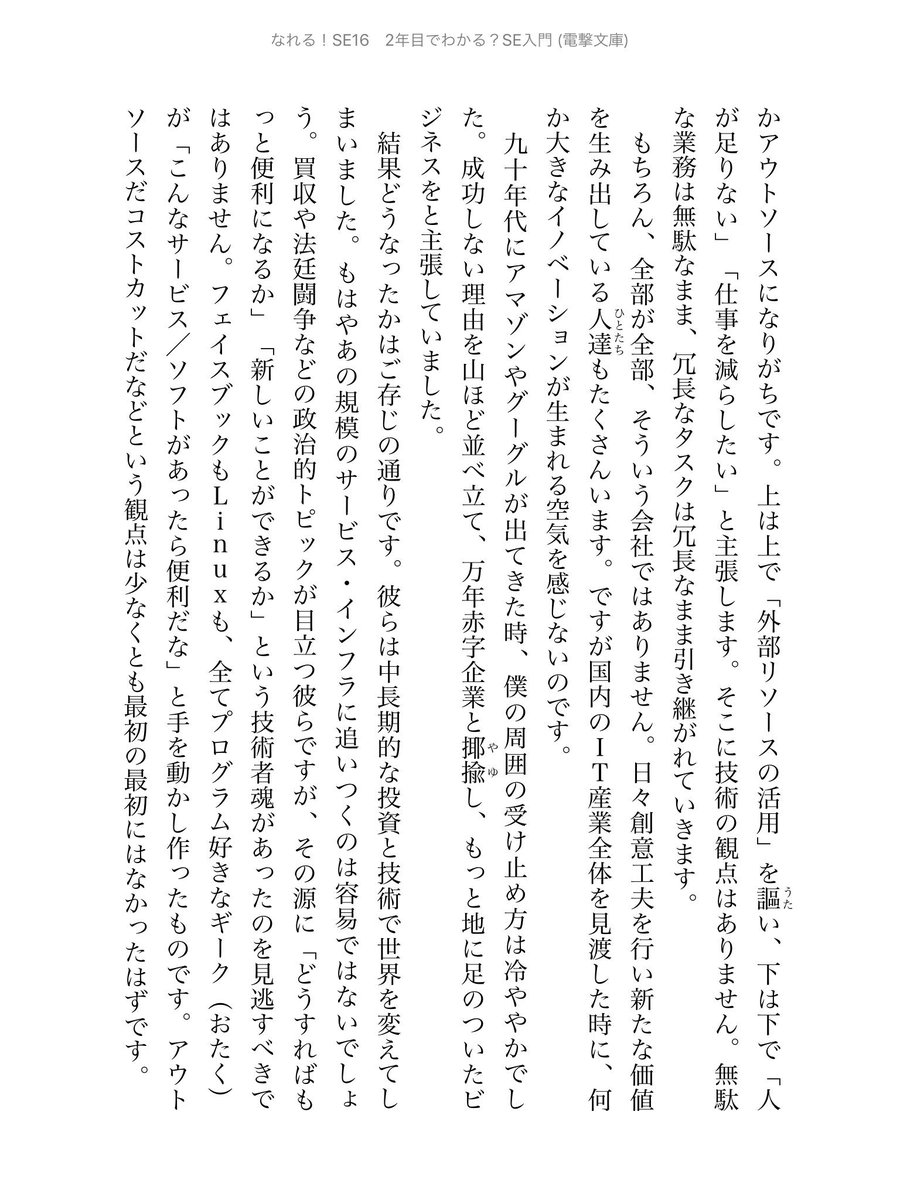 なれる！SE16　2年目でわかる？SE入門 (電撃文庫)
かアウトソースになりがちです。上は上で「外部リソースの活用」を謳い、下は下で「人
が足りない」「仕事を減らしたい」と主張します。そこに技術の観点はありません。無駄
な業務は無駄なまま、冗長なタスクは冗長なまま引き継がれていきます。
　もちろん、全部が全部、そういう会社ではありません。日々創意工夫を行い新たな価値
を生み出している人達もたくさんいます。ですが国内のIT産業全体を見渡した時に、何
か大きなイノベーションが生まれる空気を感じないのです。
　九十年代にアマゾンやグーグルが出てきた時、僕の周囲の受け止め方は冷ややかでし
た。成功しない理由を山ほど並べ立て、万年赤字企業と揶揄し、もっと地に足のついたビ
ジネスをと主張していました。
　結果どうなったかはご存じの通りです。彼らは中長期的な投資と技術で世界を変えてし
まいました。もはやあの規模のサービス・インフラに追いつくのは容易ではないでしょ
う。買収や法廷闘争などの政治的トピックが目立つ彼らですが、その源に「どうすればも
っと便利になるか」「新しいことができるか」という技術者魂があったのを見逃すべきで
はありません。フェイスブックもLinuxも、全てプログラム好きなギーク（おたく）
が「こんなサービス／ソフトがあったら便利だな」と手を動かし作ったものです。アウト
ソースだコストカットだなどという観点は少なくとも最初の最初にはなかったはずです。